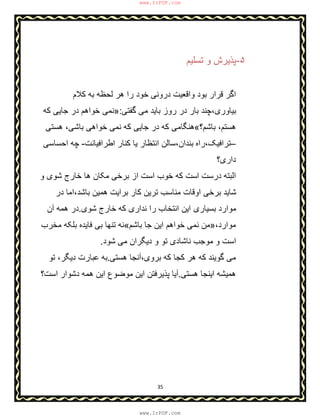 www.IrPDF.com
۵-پذیرش و تسلیم
اگر قرار بود واقعیت درونی خود را هر لحظه به کلام
بیاوری،چند بار در روز باید می گفتی:«نمی خواهم در جایی که
هستم، باشم؟»هنگامی که در جایی که نمی خواهی باشی، هستی
–ترافیک،راه بندان،سالن انتظار یا کنار اطرافیانت- چه احساسی
داری؟
البته درست است که خوب است از برخی مکان ها خارج شوی و
شاید برخی اوقات مناسب ترین کار برایت همین باشد،اما در
موارد بسیاری این انتخاب را نداری که خارج شوی.در همه آن
موارد،«من نمی خواهم این جا باشم»نه تنها بی فایده بلکه مخرب
است و موجب ناشادی تو و دیگران می شود.
می گویند که هر کجا که بروی،آنجا هستی.به عبارت دیگر، تو
همیشه اینجا هستی.آیا پذیرفتن این موضوع این همه دشوار است؟
35
www.IrPDF.com